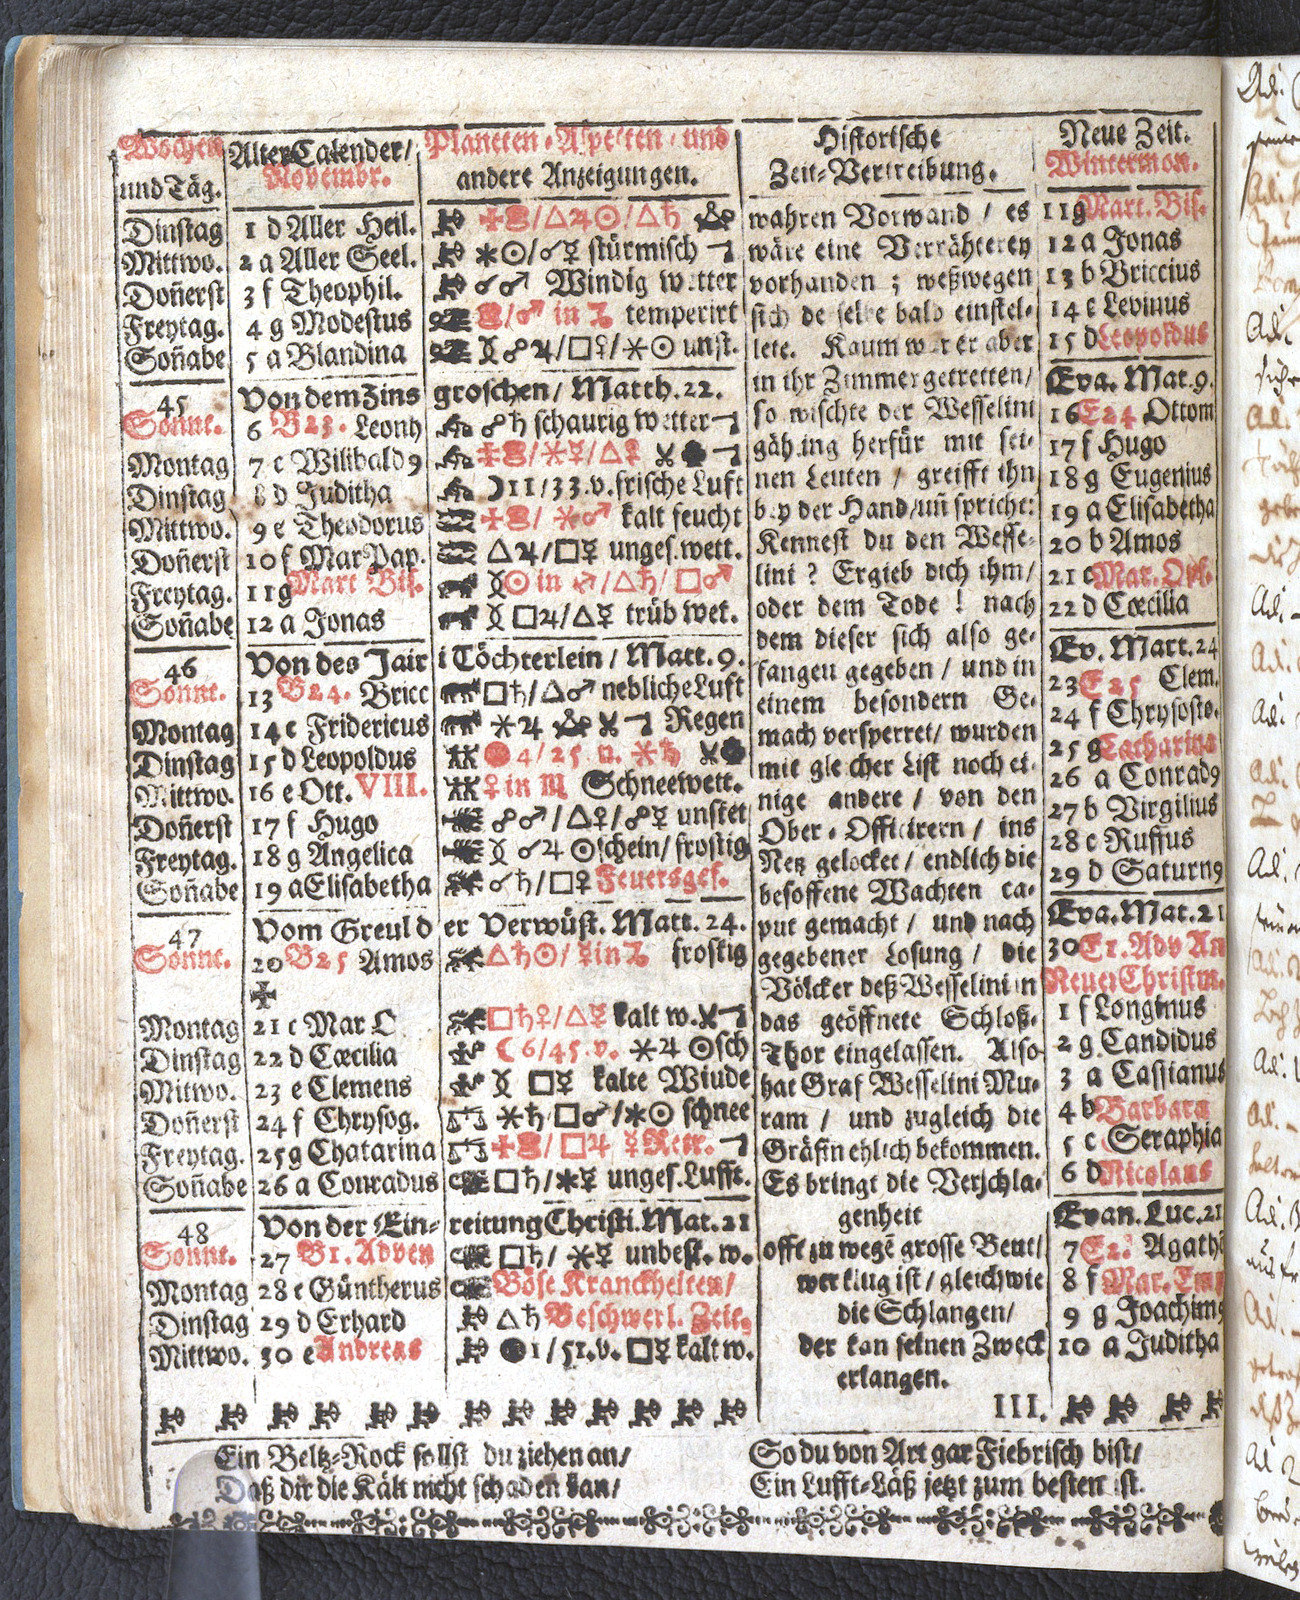 Wochen und Täg.
Alter Calender/ Novembr.
Planeten-Aspecten/ und andere Anzeigungen.
Dinstag 1 d Aller Heil. ♑ △♃☉/△♄
Mittwo. 2 a Aller Seel. ⚹☉/☌☿ stürmisch
Doñerst 3 f Theophil. ☌♂ Windig wetter
Freytag. 4 g Modestus /♂ in ♑ temperirt
Soñabe 5 a Blandina ☍♃/□♀/⚹☉ unst.
45 Von dem Zins groschen/ Matth. 22.
Sonnt. 6 B23. Leonh ☍♄ schaurig wetter
Montag 7 c Wilibald9 /⚹☿/△♀
Dinstag 8 d Juditha ☽11/33.v. frische Luft
Mittwo. 9 e Theodorus /⚹♂ kalt feucht
Doñerst 10 f Mar Pap. △♃/□☿ unges. wett.
Freytag. 11 g Mart Bis. ☉ in ♐/△♄/□♂
Soñabe 12 a Jonas □♃/△☿ trüb wet.
46 Von des Jair i Töchterlein/ Matt. 9.
Sonnt. 13 B24. Bricc □♄/△♂ nebliche Luft
Montag 14 c Fridericus ⚹♃ Regen
Dinstag 15 d Leopoldus 4/25. n. ⚹♄
Mittwo. 16 e Ott. VIII. ♀ in ♏ Schneewett.
Doñerst 17 f Hugo ☍♂/△♀/☍☿ unstet
Freytag. 18 g Angelica ☌♃ ☉schein/ frostig
Soñabe 19 a Elisabetha ☌♄/□♀ Feuersgef.
47 Vom Greul d er Verwüst. Matt. 24.
Sonnt. 20 B25 Amos △♄☉/☿in♑ frostig
✠
Montag 21 c Mar O □♄♀/△☿ kalt w.
Dinstag 22 d Cœcilia ☾6/45.v. ⚹♃ ☉sch
Mitwo. 23 e Clemens □☿ kalte Winde
Doñerst 24 f Chrysog. ⚹♄/□♂/⚹☉ schnee
Freytag. 25 g Chatarina /□♃ ☿Retr.
Soñabe 26 a Conradus □♄/⚹☿ unges. Lufft.
48 Von der Ein- reitung Christi. Mat. 21
Sonnt. 27 B1. Adven □♄/⚹☿ unbest. w.
Montag 28 c Güntherus Böse Kranckheiten/
Dinstag 29 d Erhard △♄ Beschwerl. Zeit.
Mittwo. 30 e Andreas 1/51.v. □☿ kalt w.
Historische
Zeit-Vertreibung.
wahren Vorwand/ es
wäre eine Verrähterey
vorhanden; weßwegen
sich derselbe bald einstel-
lete. Kaum war er aber
in ihr Zimmer getretten/
so wischte der Wesselini
gähling herfür mit sei-
nen Leuten/ greifft ihn
bey der Hand/ uñ spricht:
Kennest du den Wesse-
lini? Ergieb dich ihm/
oder dem Tode! nach
dem dieser sich also ge-
fangen gegeben/ und in
einem besondern Ge-
mach versperret/ wurden
mit gleicher List noch ei-
nige andere/ von den
Ober-Officirern/ ins
Netz gelocket/ endlich die
besoffene Wachten ca-
put gemacht/ und nach
gegebener Losung/ die
Völcker deß Wesselini in
das geöffnete Schloß-
Thor eingelassen. Also
hat Graf Wesselini Mu-
ram/ und zugleich die
Gräfin ehlich bekommen.
Es bringt die Verschla-
genheit
offt zu wegē grosse Beut/
wer klug ist/ gleichwie
die Schlangen/
der kan seinen Zweck
erlangen.
III.
Neue Zeit.
Wintermon.
11 g Mart. Bis.
12 a Jonas
13 b Briccius
14 c Levinus
15 d Leopoldus
Eva. Mat. 9.
16 E24 Ottom
17 f Hugo
18 g Eugenius
19 a Elisabetha
20 b Amos
21 c Mar. Opf.
22 d Cœcilia
Ev. Matt. 24
23 E25 Clem.
24 f Chrysosto.
25 g Catharina
26 a Conrad9
27 b Virgilius
28 c Ruffus
29 d Saturn9
Eva. Mat. 21
30 E1. Adv An
Neuer Christm.
1 f Longinus
2 g Candidus
3 a Cassianus
4 b Barbara
5 c Seraphia
6 d Nicolaus
Evan. Luc. 21
7 E2. Agathē
8 f Mar. Emp
9 g Joachim9
10 a Juditha
Ein Beltz-Rock sollst du ziehen an/
Daß dir die Kält nicht schaden kan/
So du von Art gar Fiebrisch bist/
Ein Lufft-Läß jetzt zum besten ist.